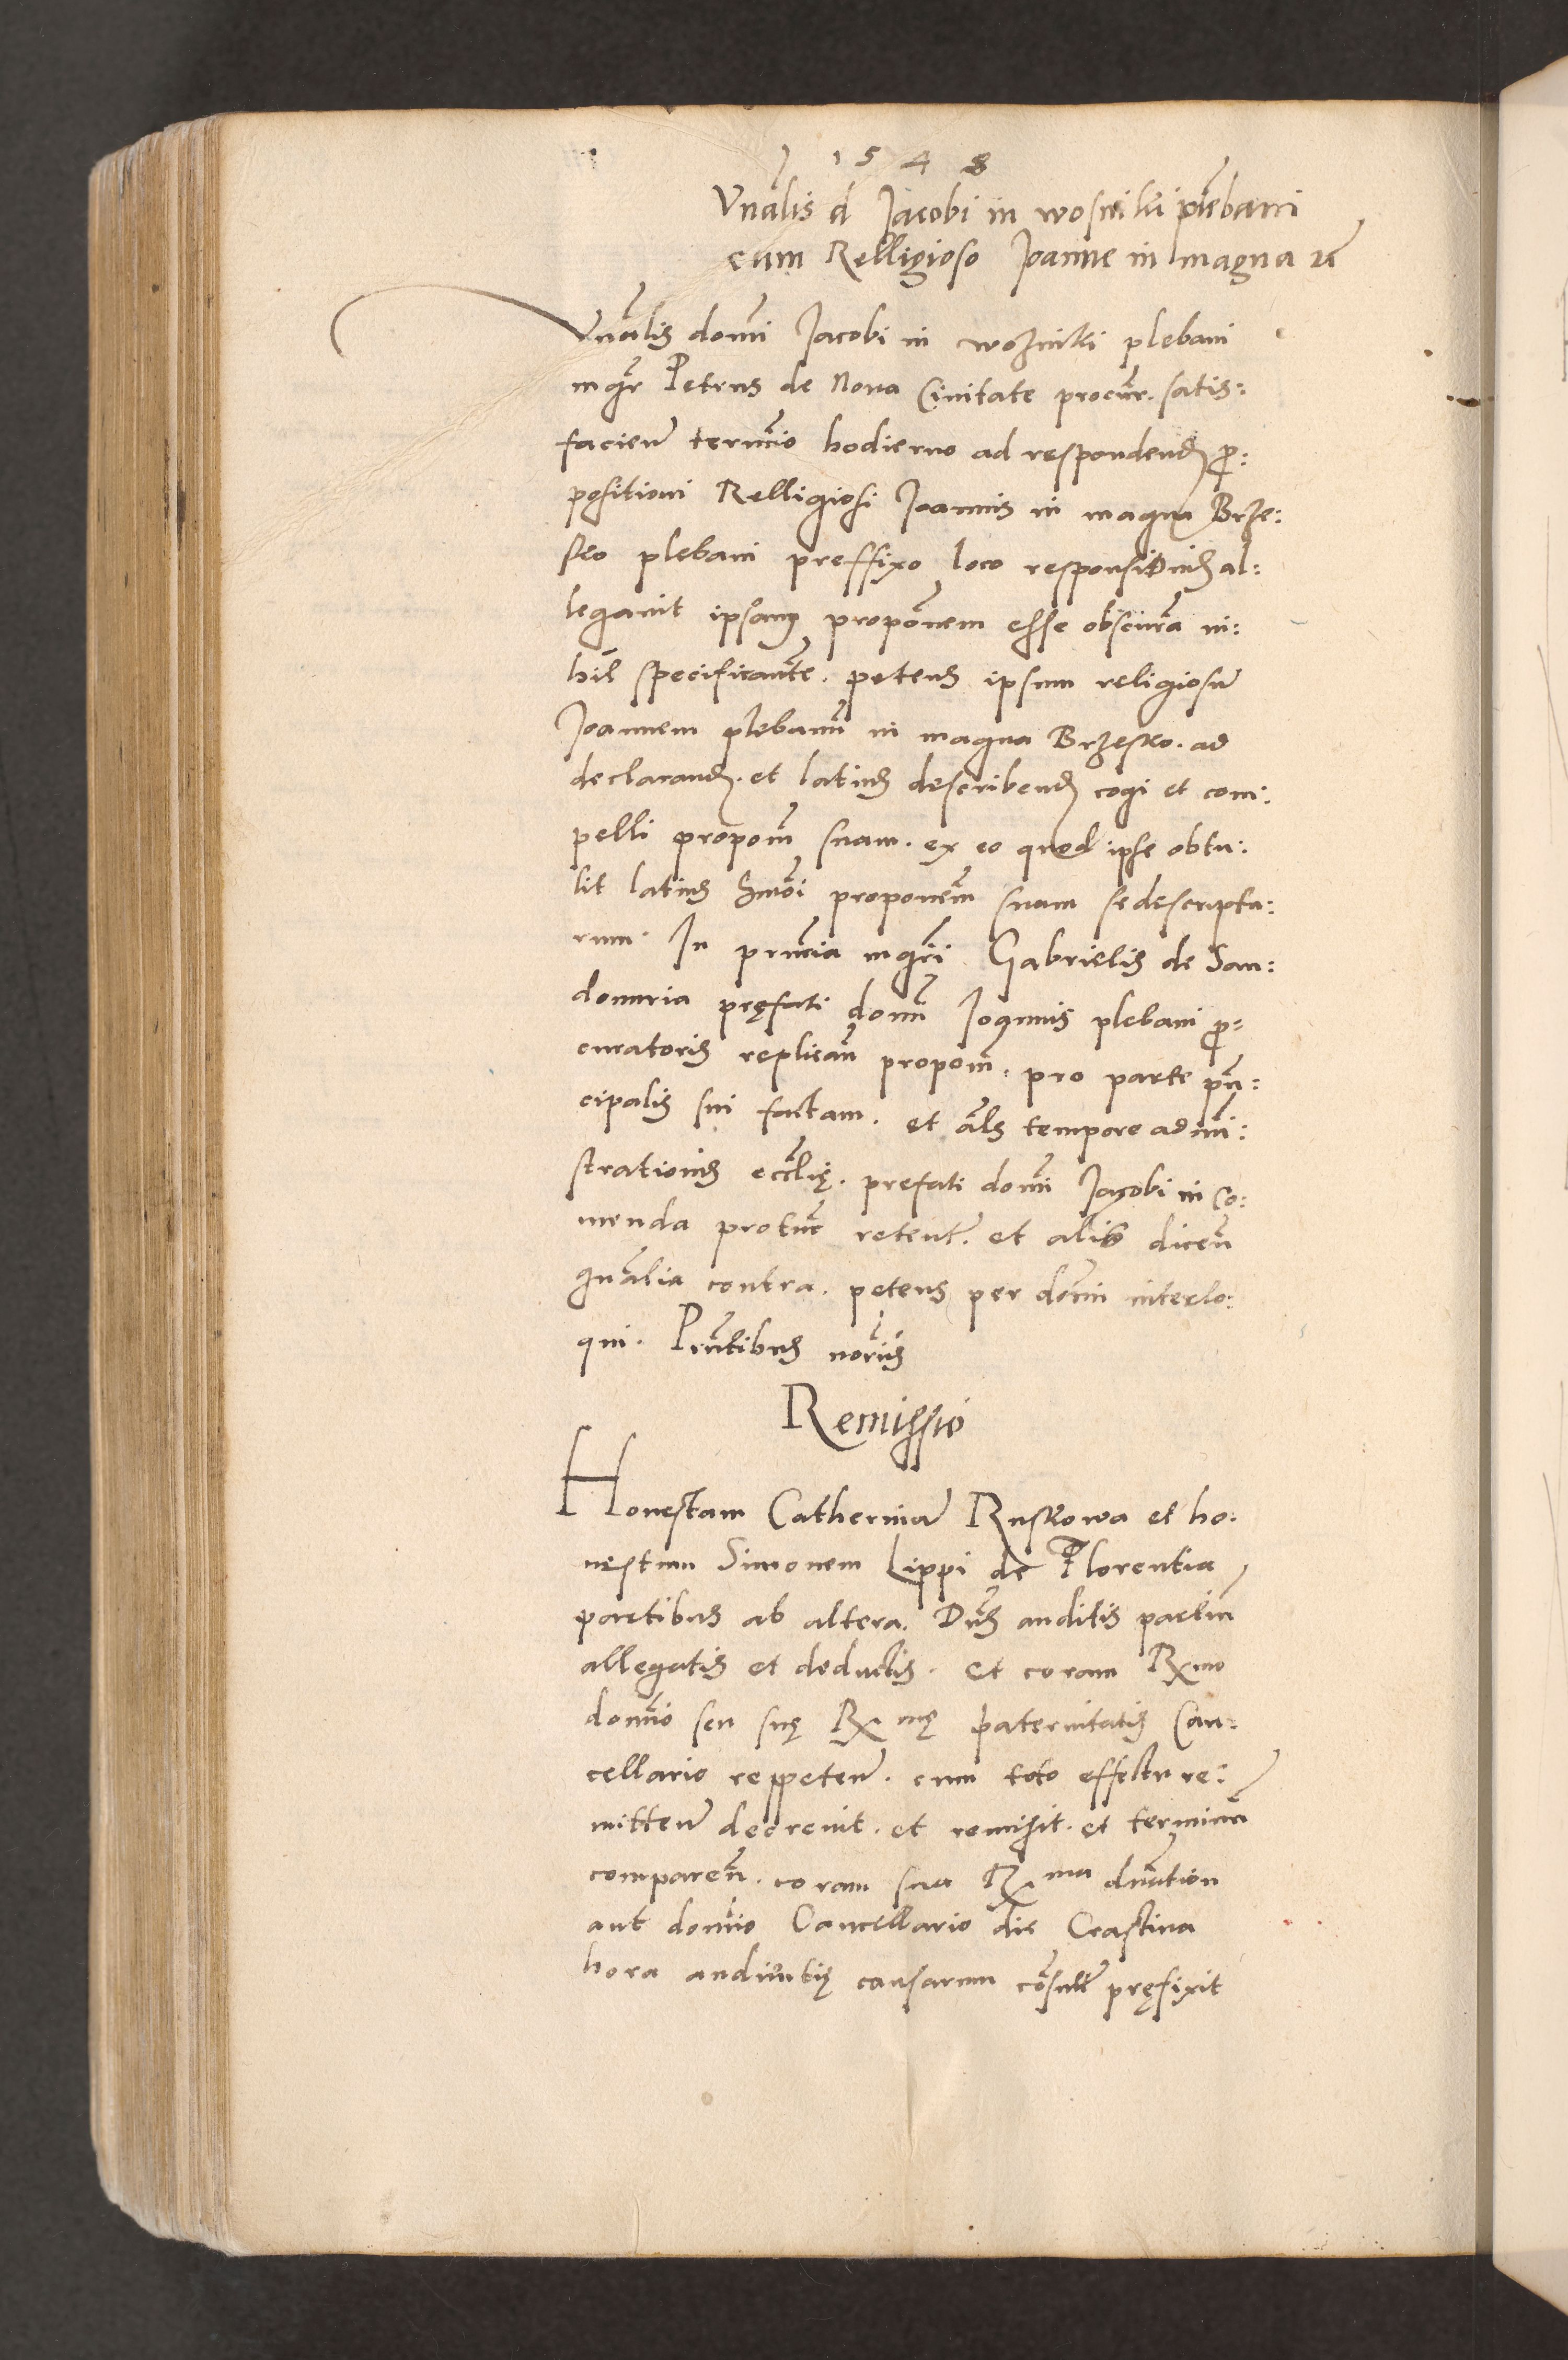 1548
Vnalis d Jacobi in wosniki plebani
cum Relligioso Joanne in magna
Vnalis domi Jacobi in wozniki plebani
mgr Petrus de Nova Civitate procur. satis:
facien termio hodierno ad respondend pro:
positioni Relligiosi Joannis in magna Brze:
sko plebani preffixo loco responsionis al:
legavit ipsam proponem esse obscura ni:
hil specificante. petens ipsum religiosu
Joannem plebanu in magna Brzesko. ad
declarand. et latius describend cogi et com:
pelli propom suam. ex eo quod ipse obtu:
lit latius proponem suam se descriptu:
rum. In pntia mgri Gabrielis de San:
domiria pręfati domi Joannis plebani pro:
curatoris replican propom. pro parte prin:
cipalis sui factam. et als tempore admi:
strationis ecclię. prefati domi Jacobi in co:
menda protunc retent. et aliis dicen
gnalia contra. petens per domi interlo:
qui. Pntibus noriis
Remissio
Honestam Catherina Ruskowa et ho:
nestum Simonem Lippi de Florentia
partibus ab altera. Dns auditis partiu
allegatis et deductis. et coram Rxmo
domio seu suę Rxmę paternitatis Can:
cellario reppeten. cum toto effectu re:
mitten decrevit. et remisit. et terminu
comparen. coram sua Rxma dnation
aut domio Cancellario die Crastina
hora audientię causarum consueta pręfixit